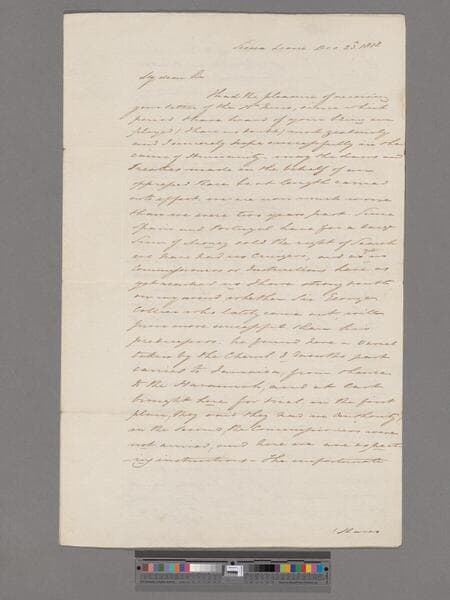 Sierra Leone Dec 23 1818
My dear Sir
I had the pleasure of receiving
your letter of the June, since which
period I have heard of your being em
ployed (I have no doubt) most zealously
and I sincerely hope successfully in the
cause of Humanity. may the Laws and
Treaties made in the behalf of an
oppressed Race be at length carried
into effect. we are now much worse
than we were two years past. Since
Spain and Portugal have for a large
Sum of Money sold the right of Search
we have had no Cruizers, and as no
Commissioners or Instructions have as
yet reached us I have strong doubts
on my mind whether Sir George
Collier who lately came out will
prove more successful than his
predecessors. he found here a Vessel
taken by the Cherub 8 months past
carried to Jamaica, from thence
to the Havannah, and at last
brought here for trial. in the first
place, they said they had no Authority,
in the Second the Commissioners were
not arrived, and here we are expect
ing instructions. The unfortunate
Slaves